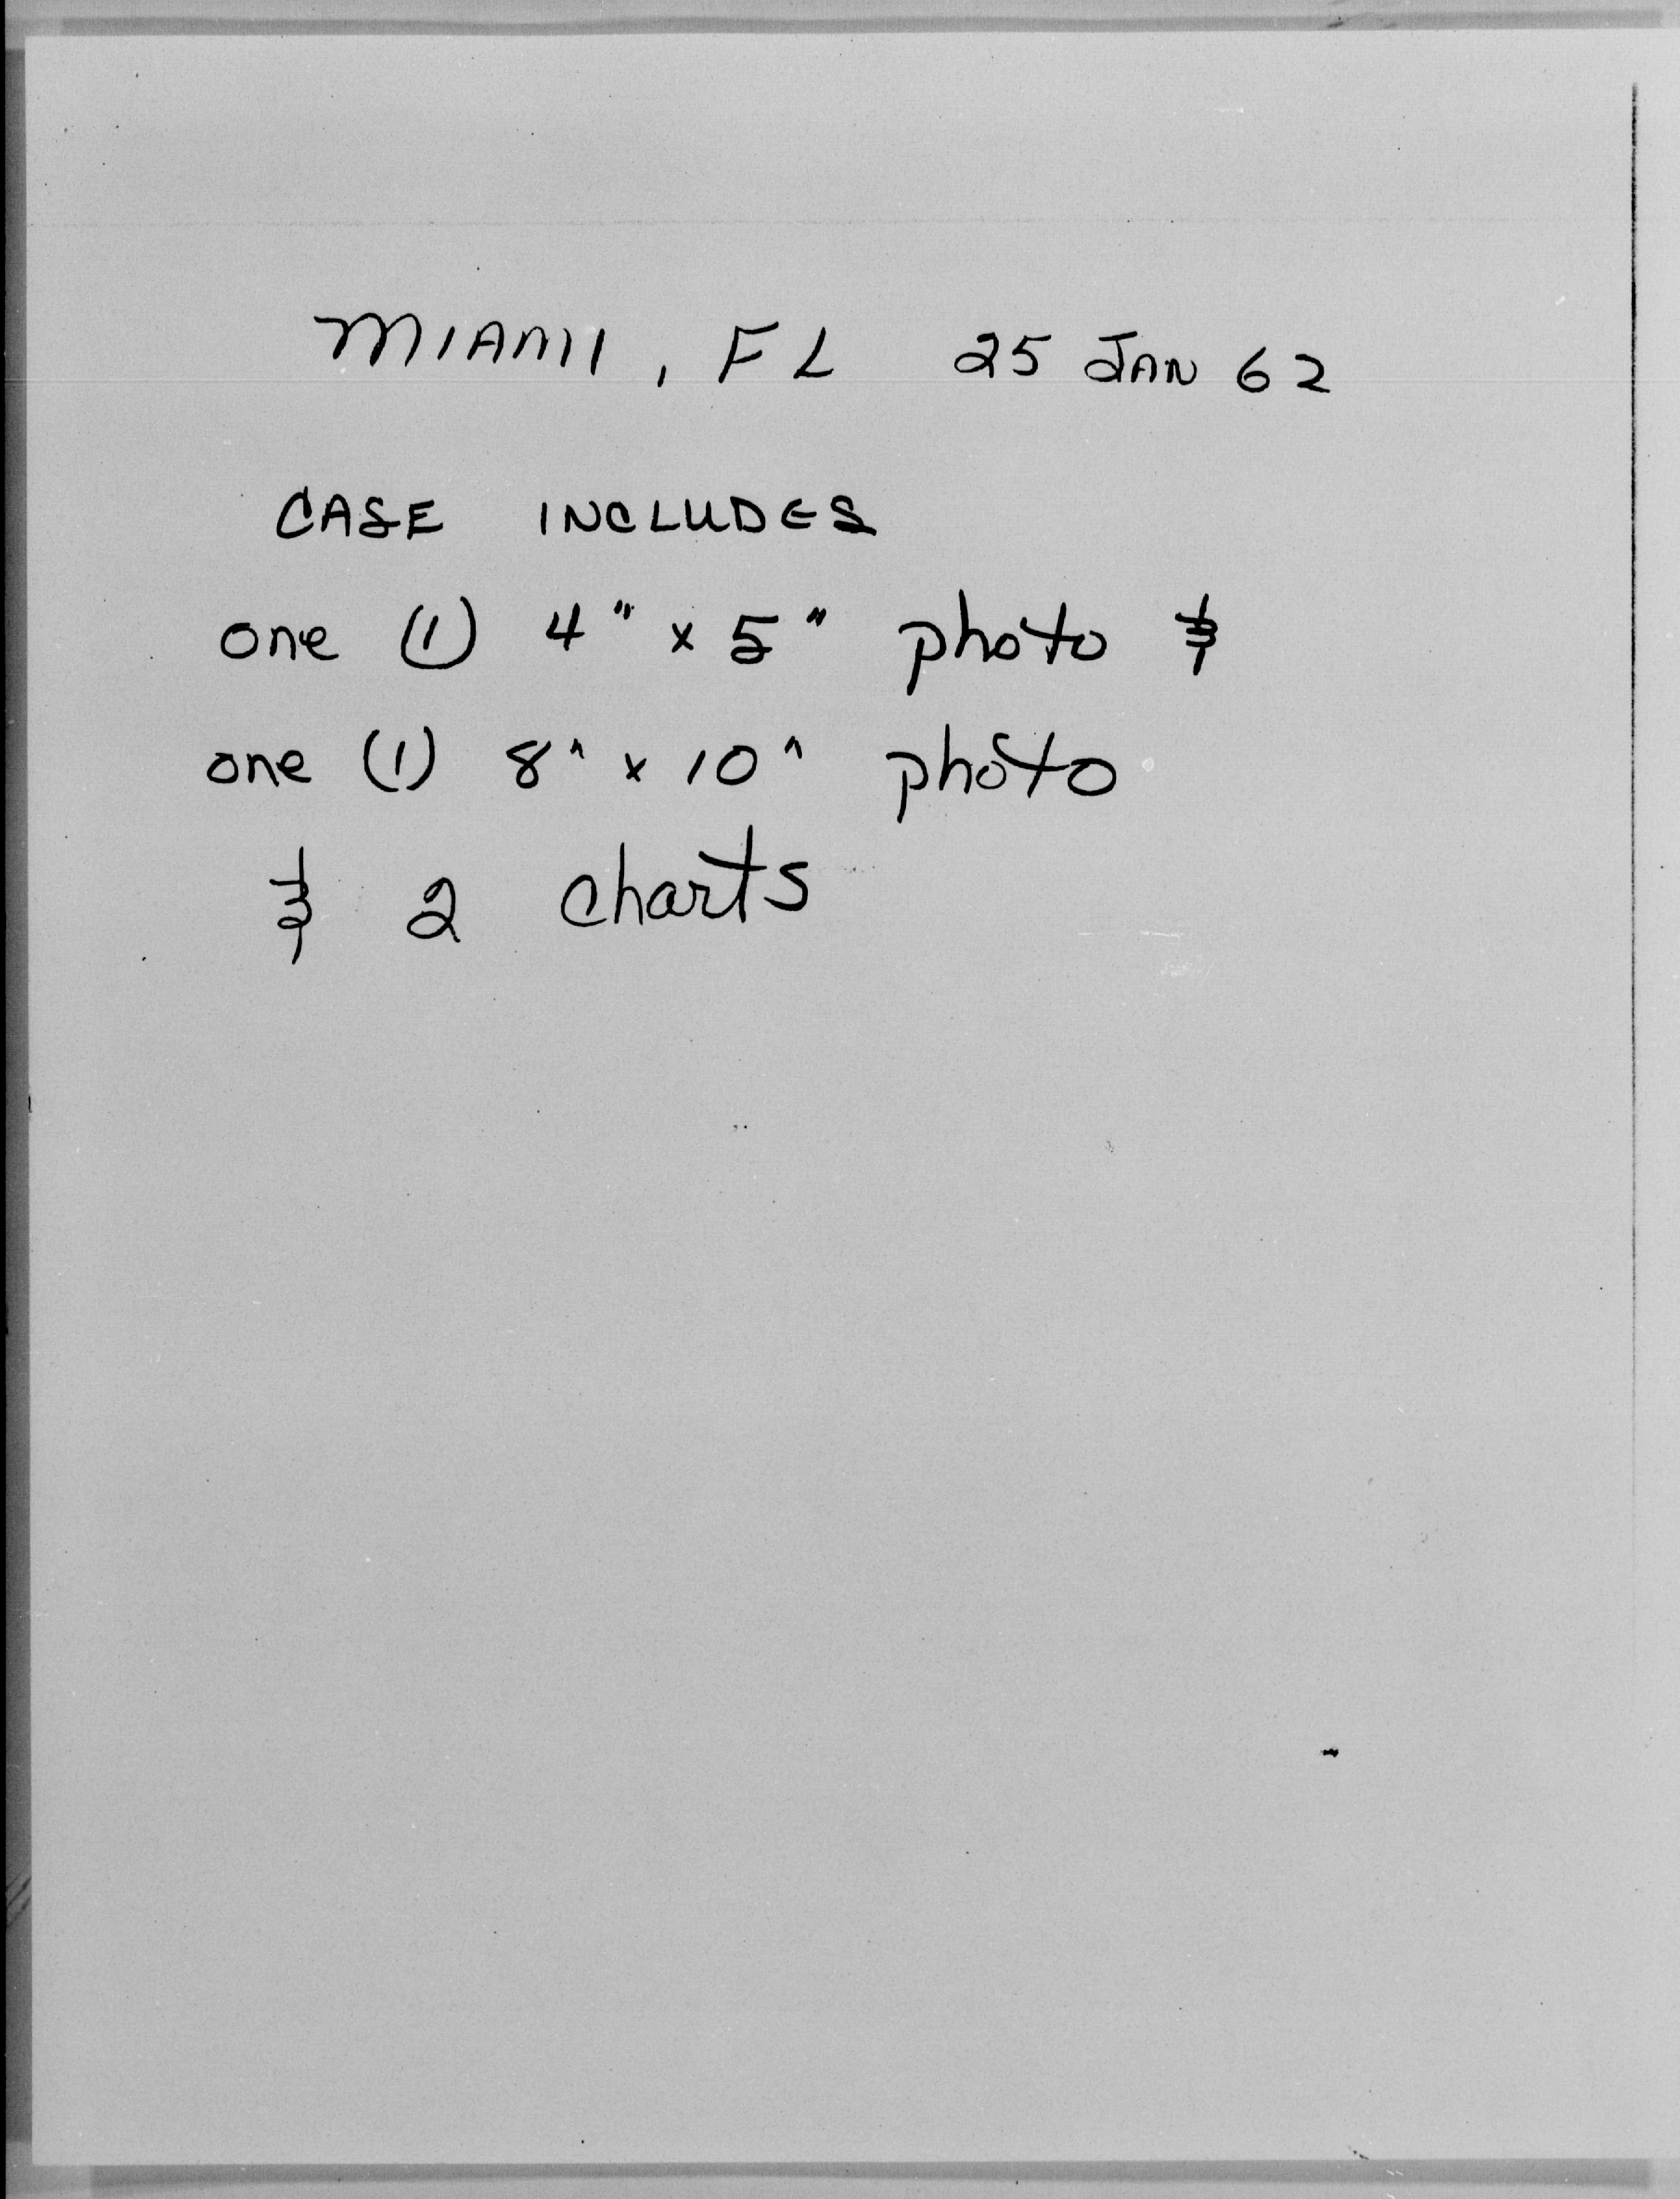 MIAMI, FL 25 JAN 62
CASE INCLUDES
one (1) 4" x 5" photo &
one (1) 8" x 10" photo
& 2 charts